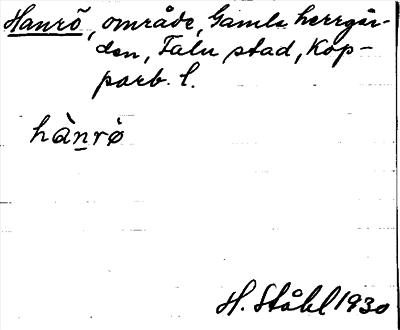 Hanrö, område, Gamla herrgår-
den, Falu stad, Kop-
parb. l.
hànrò
H. Ståhl 1930